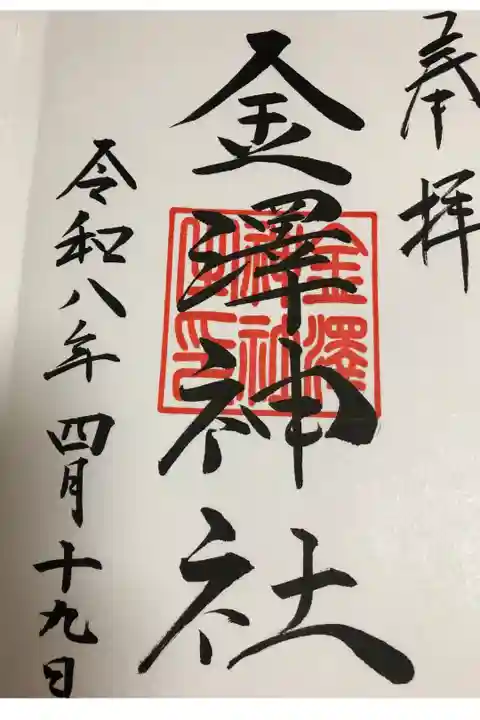 奉拝
金澤神社
金澤
神社
令和八年四月十九日